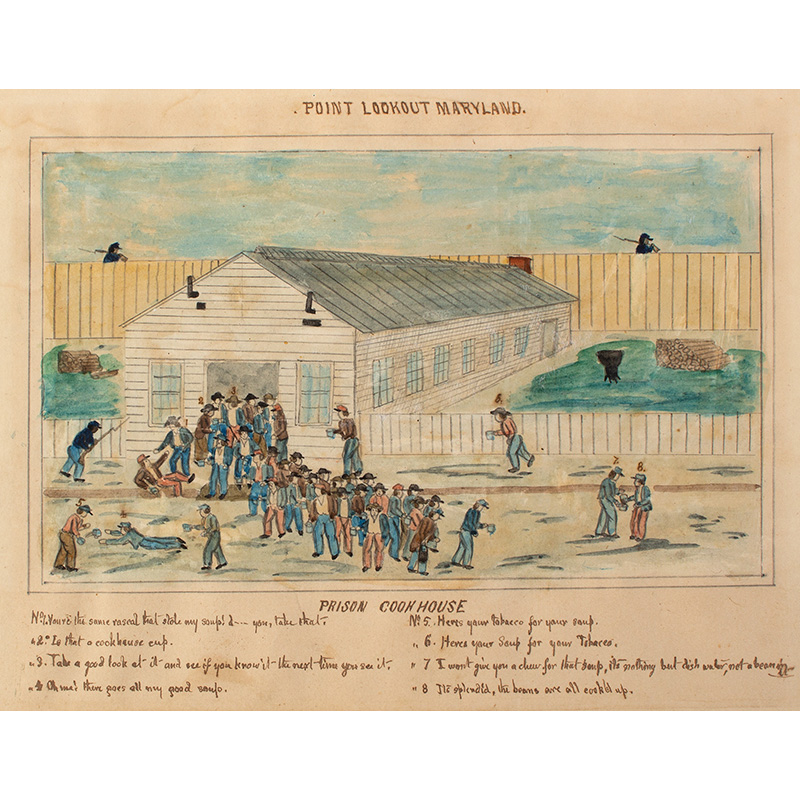 . POINT LOOKOUT MARYLAND.
2.
6.
7. 8.
PRISON COOKHOUSE
No 1. You're the same rascal that stole my soup! d--- you, take that.
" 2. Is that a cookhouse cup.
" 3. Take a good look at it and see if you know it the next time you see it.
" 4 Oh me! there goes all my good soup.
No 5. Heres your Tobacco for your soup.
" 6. Heres your Soup for your Tobacco.
" 7 I wont give you a chew for that Soup, its nothing but dish water, not a bean
" 8 Its splendid, the beans are all cook'd up.